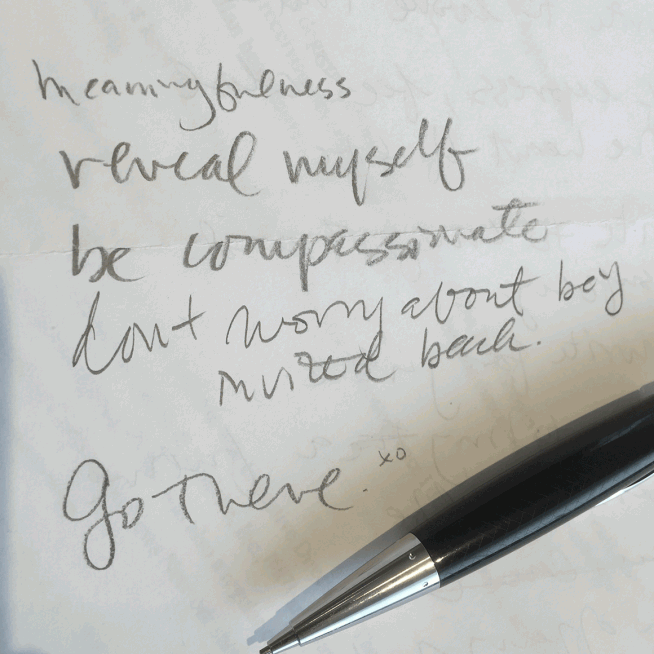 meaningfulness
reveal myself
be compassionate
don't worry about bey
invited back.
Go There. xo